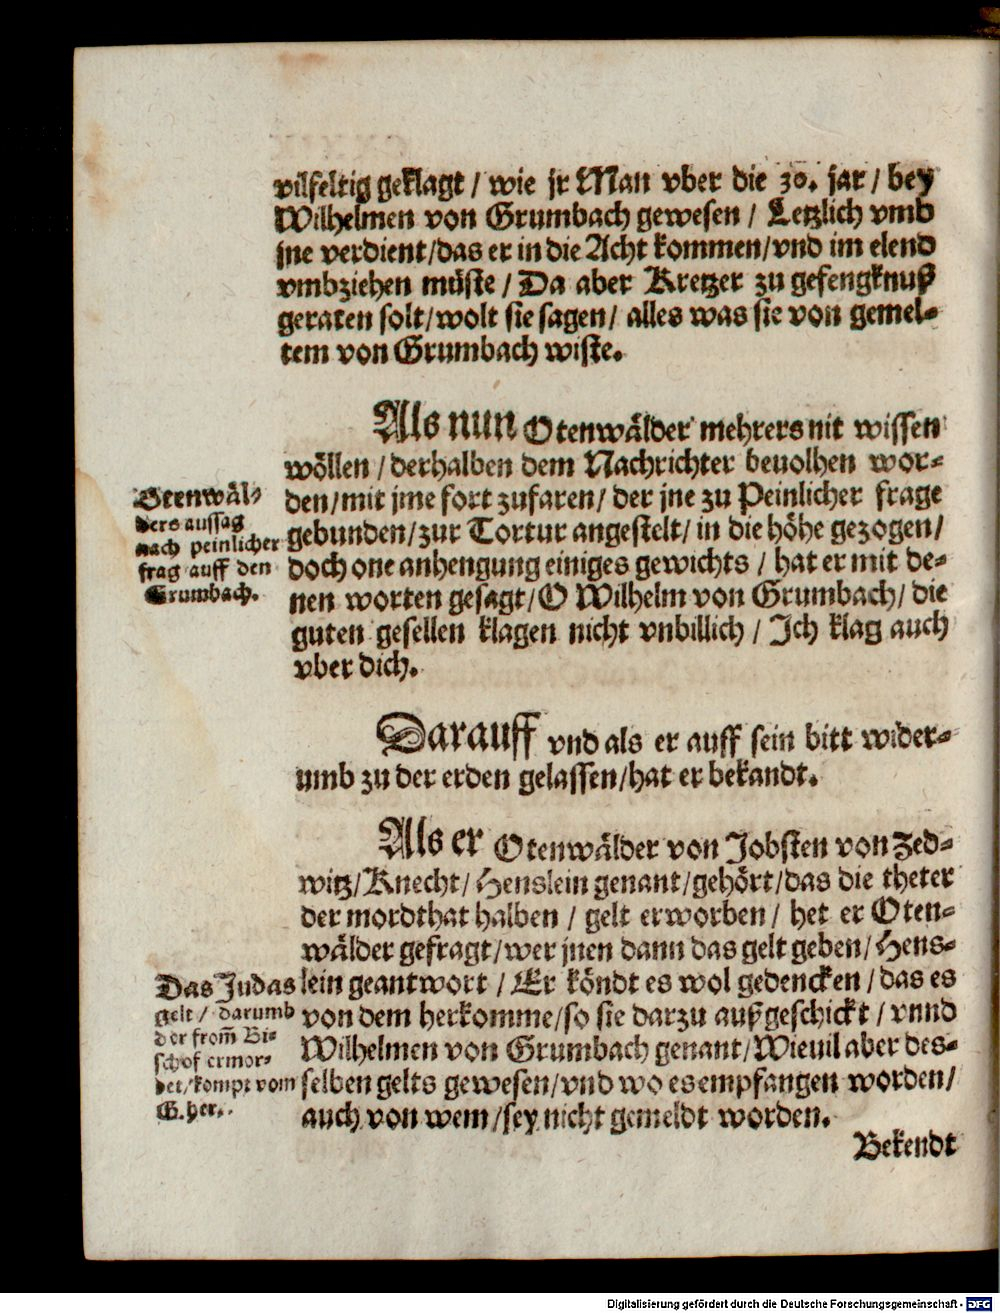 vilfeltig geklagt / wie jr Man vber die 30. jar / bey
Wilhelmen von Grumbach gewesen / Letzlich vmb
jne verdient/das er in die Acht kommen/vnd im elend
vmbziehen müste / Da aber Kretzer zu gefengknuß
geraten solt/wolt sie sagen/ alles was sie von gemel-
tem von Grumbach wiste.
Als nun Otenwälder mehrers nit wissen
wöllen / derhalben dem Nachrichter beuolhen wor-
den/mit jme fort zufaren/ der jne zu Peinlicher frage
gebunden/zur Tortur angestelt/ in die höhe gezogen/
doch one anhengung einiges gewichts / hat er mit de-
nen worten gesagt/O Wilhelm von Grumbach/ die
guten gesellen klagen nicht vnbillich / Ich klag auch
vber dich.
Otenwäl-
ders aussag
nach peinlicher
frag auff den
Grumbach.
Darauff vnd als er auff sein bitt wider-
umb zu der erden gelassen/hat er bekandt.
Als er Otenwälder von Jobsten von Zed-
witz/Knecht/Henslein genant/gehört/das die theter
der mordthat halben / gelt erworben / het er Oten-
wälder gefragt/wer jnen dann das gelt geben/Hens-
lein geantwort / Er köndt es wol gedencken / das es
von dem herkomme/so sie darzu außgeschickt / vnnd
Wilhelmen von Grumbach genant/Wieuil aber des-
selben gelts gewesen/vnd wo es empfangen worden/
auch von wem/sey nicht gemeldt worden.
Das Judas
gelt / darumb
der from̃ Bi-
schof ermor-
det/kompt vom
G. her.
Bekendt
Digitalisierung gefördert durch die Deutsche Forschungsgemeinschaft - DFG